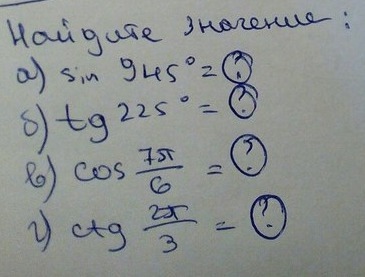 Найдите значение:
а) sin 945° = ?
б) tg 225° = ?
в) cos 7π/6 = ?
г) ctg 2π/3 = ?